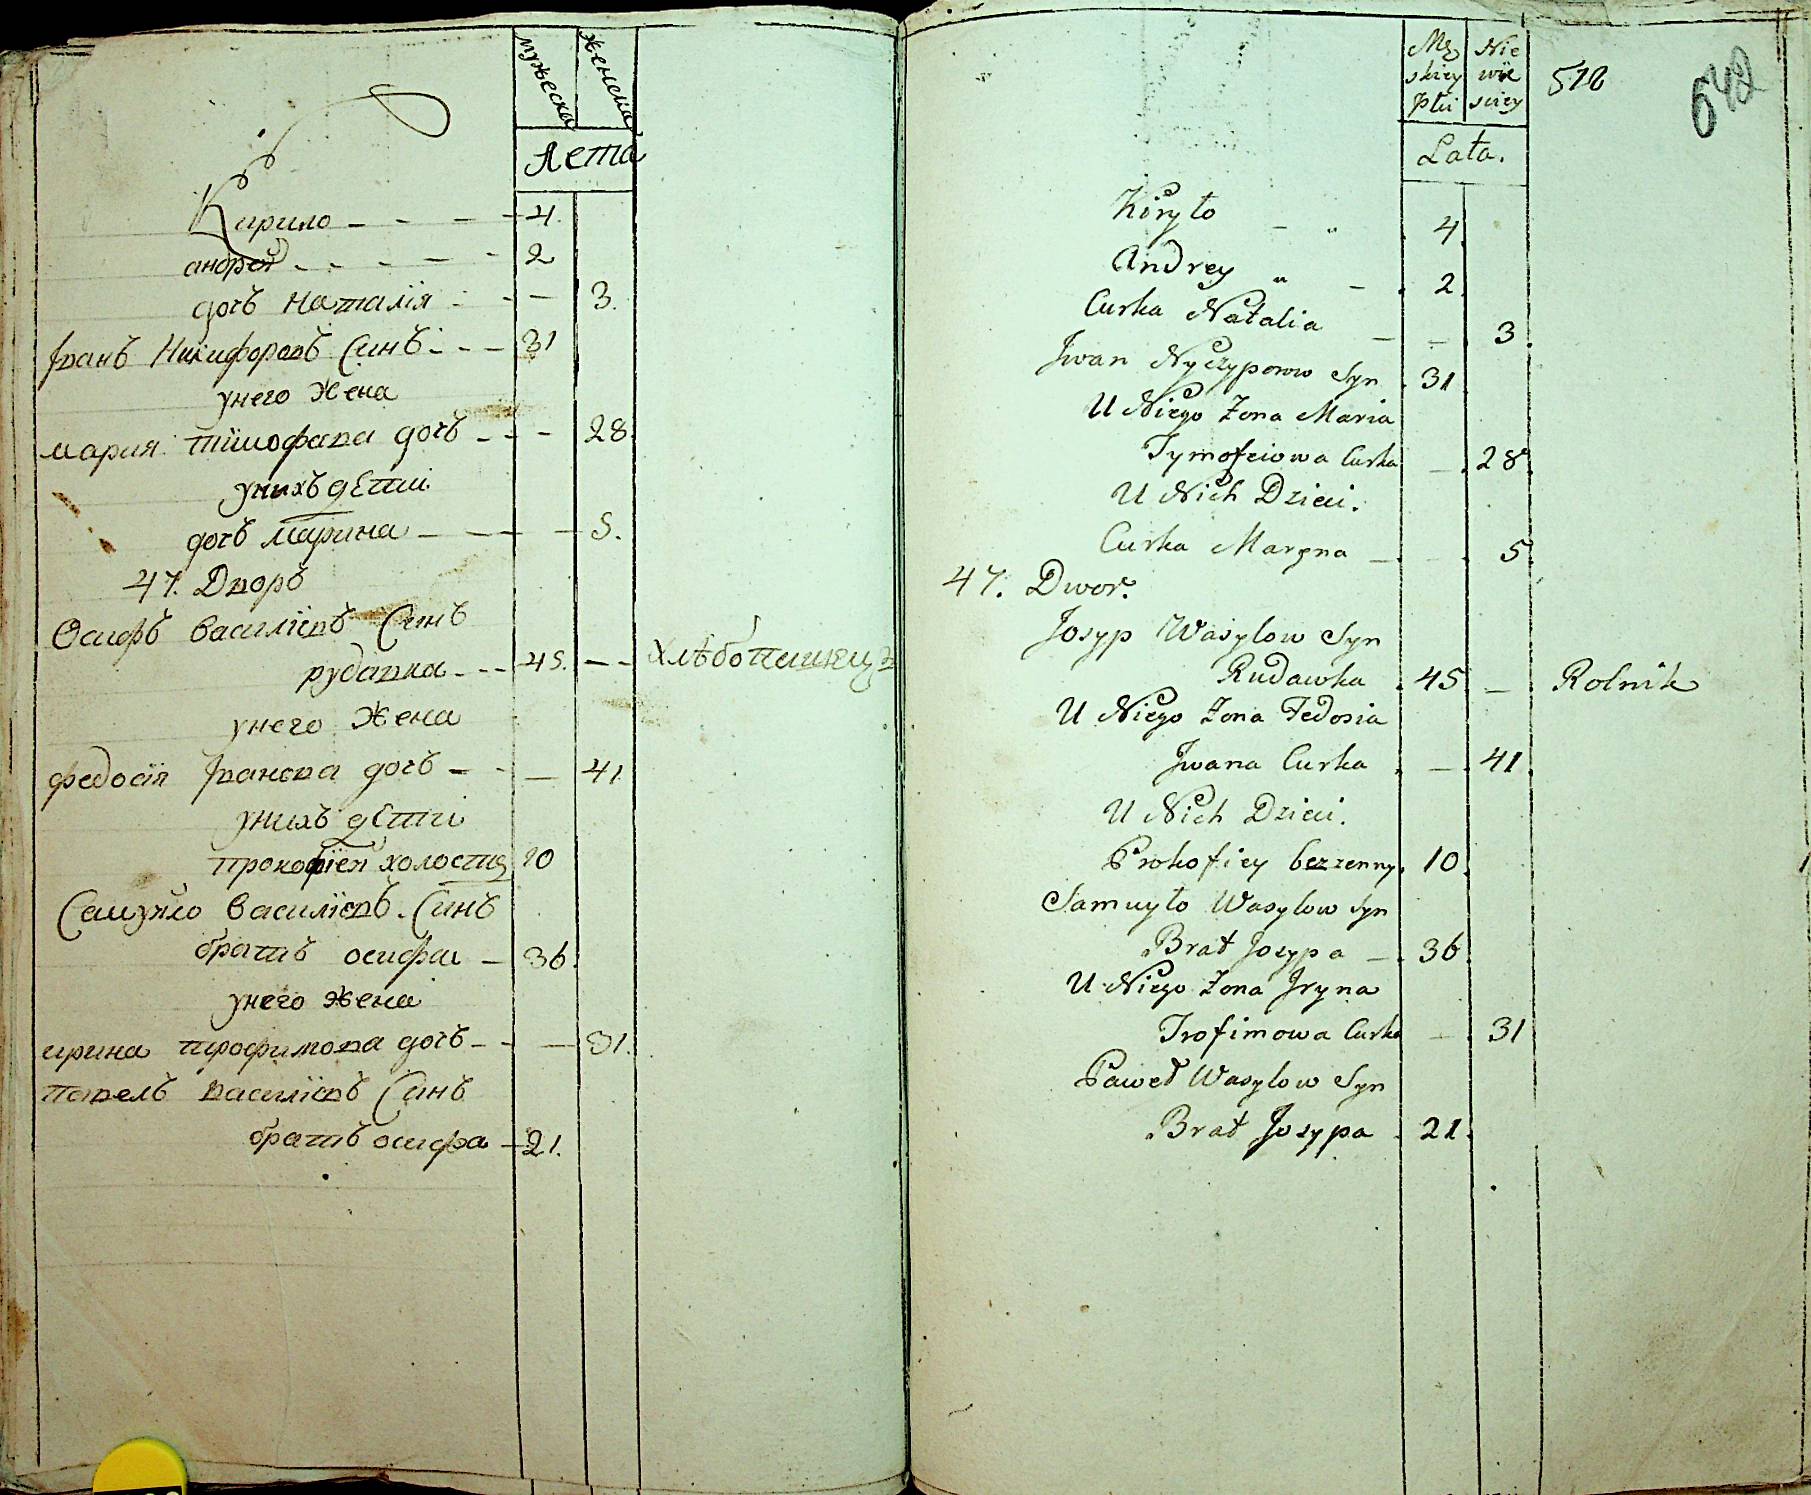 мужеска
женска
Лета
Кирило - - - - 4.
андрей - - - - - 2
дочъ наталїя - - - 3.
Іванъ Никифоровъ Синъ - - - 31
унего жена
мария тимофѣева дочъ - - - 28.
унихъ дѣти
дочъ марина - - - 5.
47. Дворъ
Осифъ василїевъ Синъ
рудавка - - - 45. - - хлѣбопашецъ
унего жена
федосїя Іванова дочъ - - - 41
унихъ дѣти
прокофїей холости 10
Самуйло василїевъ Синъ
братъ осифа - 36.
унего жена
ирина трофимова дочъ - - - 31.
павелъ василїевъ Синъ
братъ осифа - 21.
Mę Nie
skiey wie
płci sciey
512
642
Lata.
Kiryło - " 4
Andrey " - 2
Curka Natalia - - 3
Jwan Nyczyporow Syn 31
U Niego Zona Maria
Tymofeiowa Curka - 28
U Nich Dzieci.
Curka Maryna - - 5
47. Dwor.
Josyp Wasylow Syn
Rudawka 45 - Rolnik
U Niego Zona Fedosia
Jwana Curka - 41
U Nich Dzieci.
Prokofiey bezzenny 10
Samuyło Wasylow Syn
Brat Josypa - 36
U Niego Zona Jryna
Trofimowa Curka - 31
Paweł Wasylow Syn
Brat Josypa 21